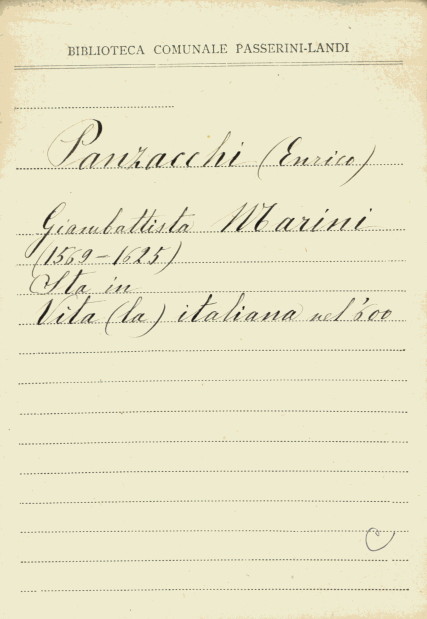 BIBLIOTECA COMUNALE PASSERINI-LANDI
Panzacchi (Enrico)
Giambattista Marini
(1569-1625)
Sta in
Vita (la) italiana nel '600